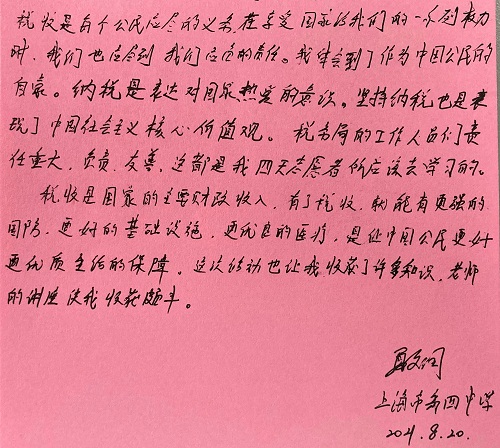 税收是每个公民应尽的义务，在享受国家给我们的一系列权力
时，我们也应尽到我们应尽的责任。我体会到了作为中国公民的
自豪。纳税是表达对国家热爱的意识。坚持纳税也是表
现了中国社会主义核心价值观。税务局的工作人员们责
任重大，负责，友善，这都是我四天志愿者所应该去学习的。
税收是国家的主要财政收入，有了税收，就能有更强的
国防，更好的基础设施，更优良的医疗，是让中国公民更好
更优质生活的保障。这次活动也让我收获了许多知识，老师
的讲座使我收获颇丰。
上海市第四中学
2021.8.20.